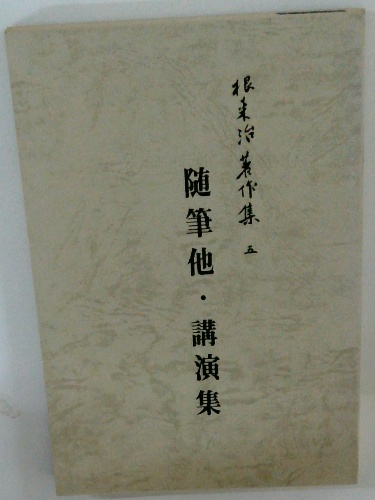 根来治著作集 五
随筆他・講演集